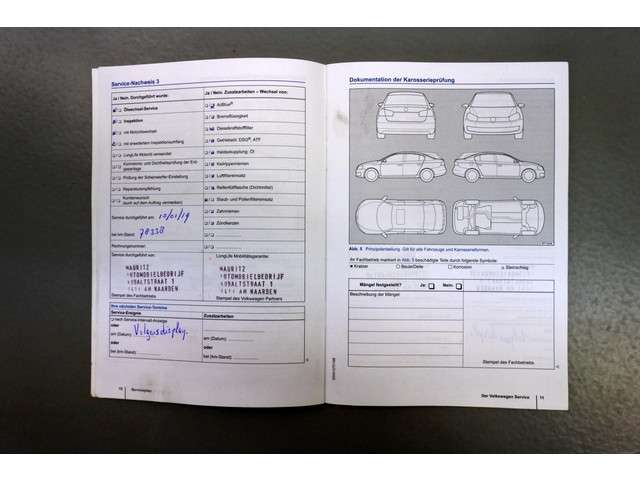 Service-Nachweis 3
Ja / Nein, Durchgeführt wurde:
Ölwechsel-Service
Inspektion
mit Motorölwechsel
mit erweitertem Inspektionsumfang
LongLife Motoröl verwendet
Korrosions- und Dichtheitsprüfung der Erdgasanlage
Prüfung der Scheinwerfer-Einstellung
Reparaturempfehlung
Kundenwunsch
(auch auf dem Auftrag vermerken)
Service durchgeführt am: 10/01/19
bei km-Stand: 78338
Rechnungsnummer:
MAURITZ
AUTOMOBIELBEDRIJF
Stempel des Fachbetriebs
Ja / Nein, Zusatzarbeiten – Wechsel von:
AdBlue®
Bremsflüssigkeit
Dieselkraftstofffilter
Getriebeöl: DSG®, ATF
Haldexkupplung: Öl
Keilrippenriemen
Luftfiltereinsatz
Reifenfüllflasche (Dichtmittel)
Staub- und Pollenfiltereinsatz
Zahnriemen
Zündkerzen
LongLife Mobilitätsgarantie:
MAURITZ
AUTOMOBIELBEDRIJF
1411 AM NAARDEN
Stempel des Volkswagen Partners
Ihre nächsten Service-Termine
Service-Ereignis:
nach Service-Intervall-Anzeige
oder
am (Datum):
oder
bei (km-Stand):
Volgens display
Zusatzarbeiten:
am (Datum):
oder
bei (km-Stand):
Serviceplan
Dokumentation der Karosserieprüfung
Abb. 5 Prinzipdarstellung: Gilt für alle Fahrzeuge und Karosserieformen.
Ihr Fachbetrieb markiert in Abb. 5 beschädigte Teile durch folgende Symbole:
Kratzer
Beule/Delle
Korrosion
Steinschlag
Mängel festgestellt? Ja: Nein:
Beschreibung der Mängel:
Stempel des Fachbetriebs
Der Volkswagen Service